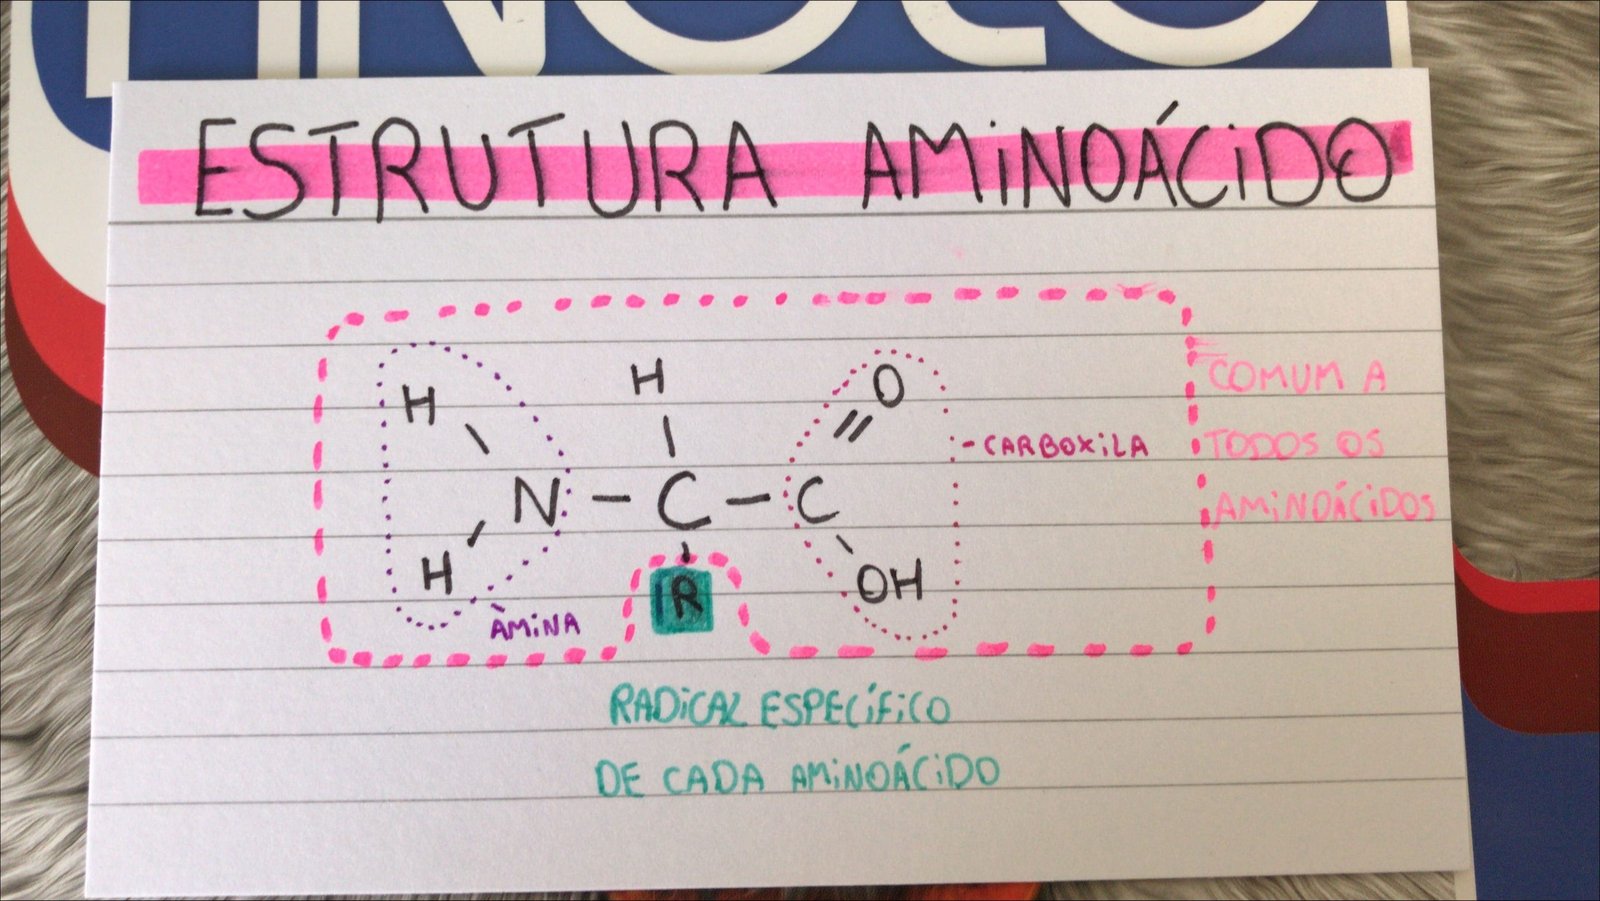 ESTRUTURA AMINOÁCIDO
H
H
O
N — C — C
H
R
OH
COMUM A
TODOS OS
AMINOÁCIDOS
- CARBOXILA
AMINA
RADICAL ESPECÍFICO
DE CADA AMINOÁCIDO